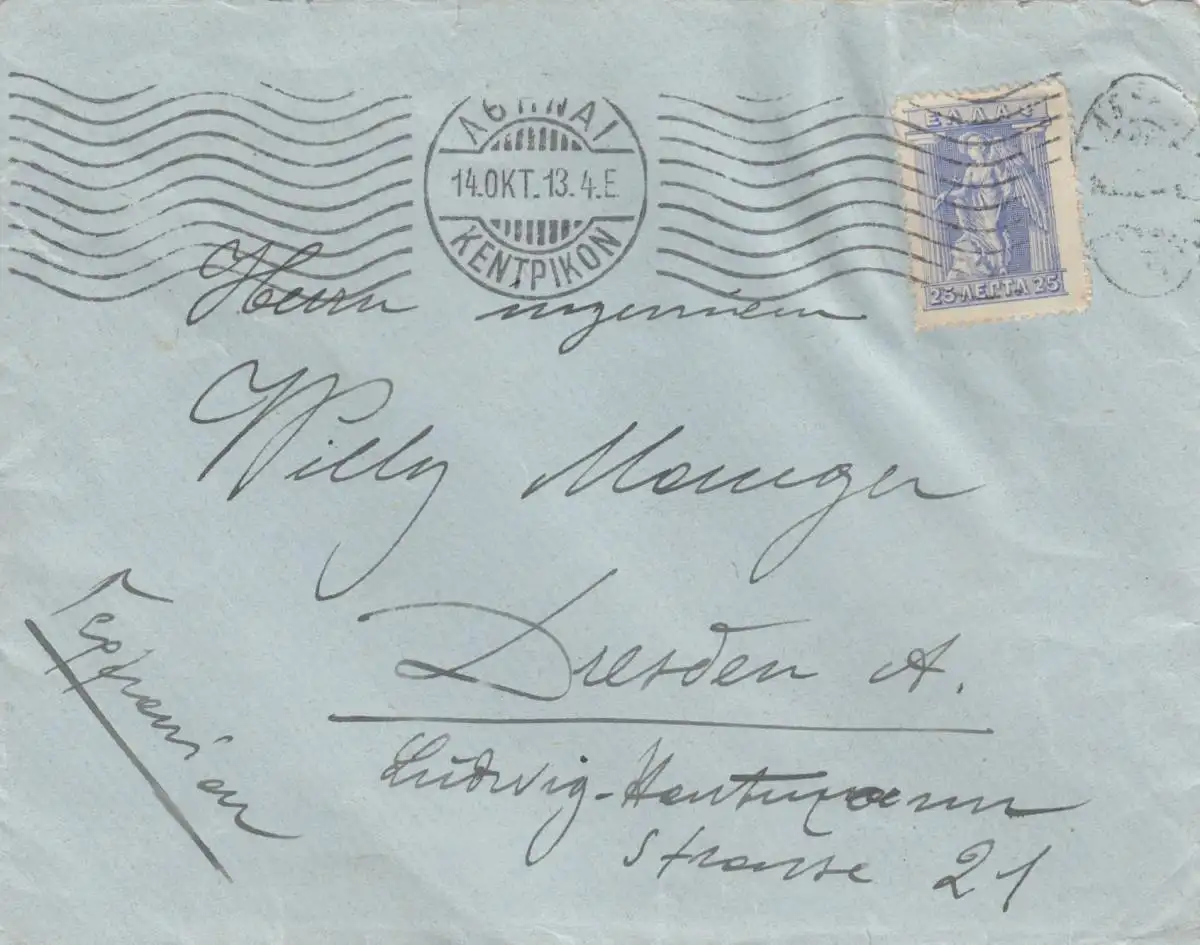 ΑΘΗΝΑΙ
14.ΟΚΤ.13.4.Ε
ΚΕΝΤΡΙΚΟΝ
ΕΛΛΑΣ
25 ΛΕΠΤΑ 25
Herrn Ingenieur
Willy
Dresden A.
Ludwig-Hartmann
Strasse 21